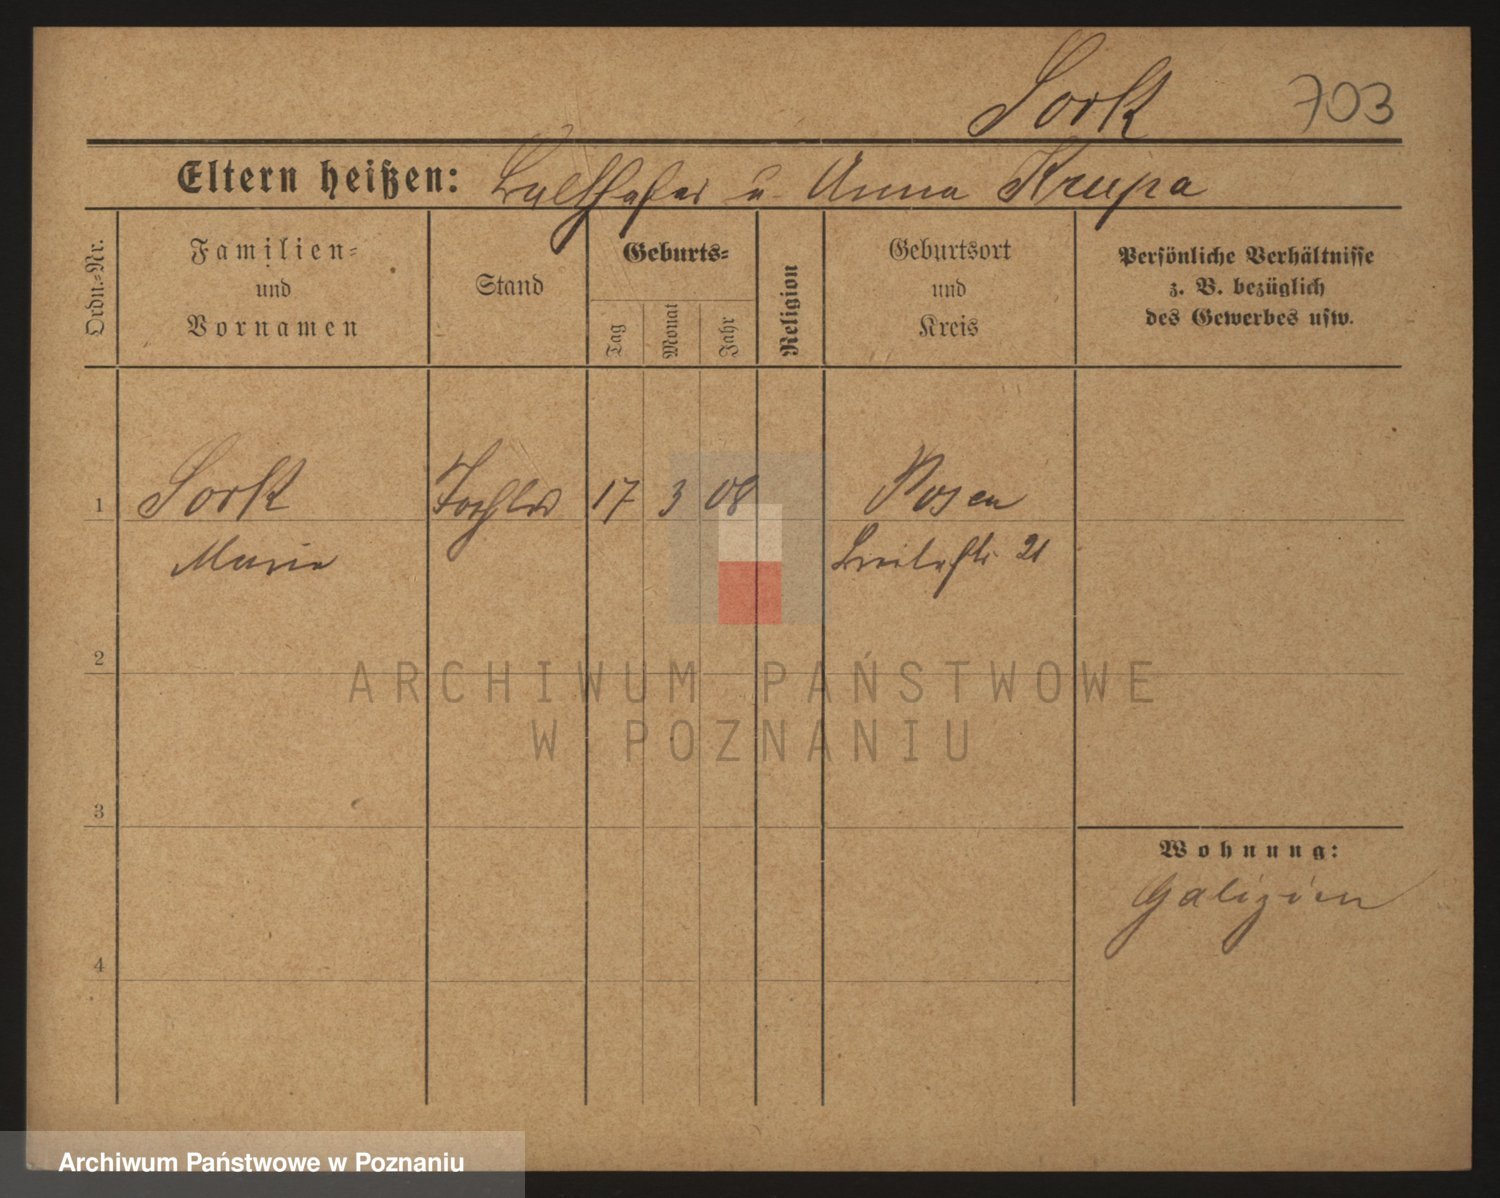 Sork 703
Eltern heißen: Balthasar u. Anna Krupa
Ordn.-Nr.
Familien-
und
Vornamen
Stand
Geburts-
Tag
Monat
Jahr
Religion
Geburtsort
und
Kreis
Persönliche Verhältnisse
z. B. bezüglich
des Gewerbes usw.
1 Sork Tochter 17 3 08 Posen
Marie Breitestr. 21
2
3
4
Wohnung:
Galizien
ARCHIWUM PAŃSTWOWE
W POZNANIU
Archiwum Państwowe w Poznaniu